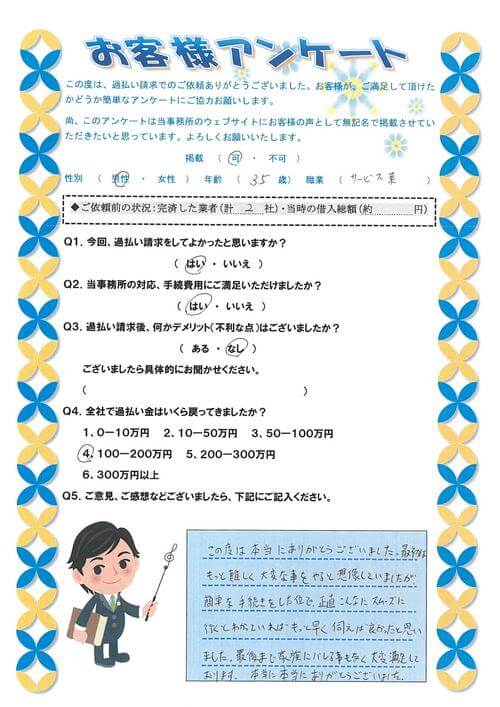 お客様アンケート
この度は、過払い請求でのご依頼ありがとうございました。お客様が、ご満足して頂けた
かどうか簡単なアンケートにご協力お願いします。
尚、このアンケートは当事務所のウェブサイトにお客様の声として無記名で掲載させてい
ただきたいと思っています。よろしくお願いいたします。
掲載 （ 可 ・ 不可 ）
性別 （ 男性 ・ 女性 ） 年齢 （ 35 歳） 職業 （ サービス業 ）
◆ご依頼前の状況：完済した業者（計 2 社）・当時の借入総額（約 円）
Q1. 今回、過払い請求をしてよかったと思いますか？
（ はい ・ いいえ ）
Q2. 当事務所の対応、手続費用にご満足いただけましたか？
（ はい ・ いいえ ）
Q3. 過払い請求後、何かデメリット（不利な点）はございましたか？
（ ある ・ なし ）
ございましたら具体的にお聞かせください。
（ ）
Q4. 全社で過払い金はいくら戻ってきましたか？
1、0－10万円 2、10－50万円 3、50－100万円
4、100－200万円 5、200－300万円
6、300万円以上
Q5. ご意見、ご感想などございましたら、下記にご記入ください。
この度は本当にありがとうございました。最初は
もっと難しく大変な事をやると想像していましたが
簡単な手続きをした位で、正直こんなにスムーズに
行くとわかっていればもっと早く伺えば良かったと思い
ました。最後まで家族にバレる事もなく大変満足して
おります。本当に本当にありがとうございました。